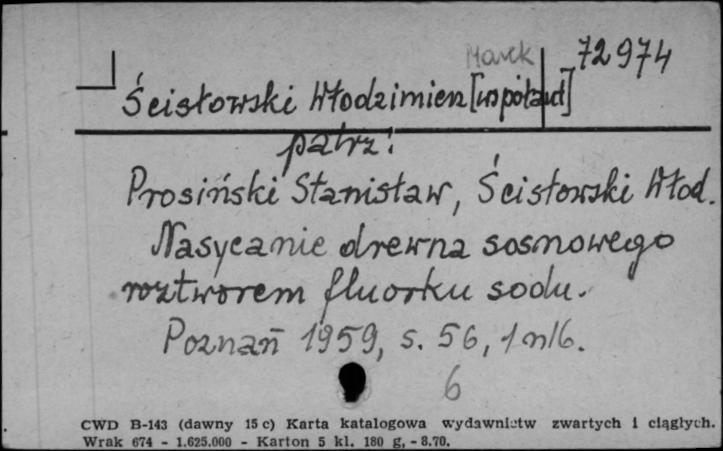 Marek 72974
Ścisłowski Włodzimierz [współaut]
patrz:
Prosiński Stanisław, Ścisłowski Włod.
Nasycanie drewna sosnowego
roztworem fluorku sodu.
Poznań 1959, s. 56, 1 nlb.
6
CWD B-143 (dawny 15 c) Karta katalogowa wydawnictw zwartych i ciągłych.
Wrak 674 - 1.625.000 - Karton 5 kl. 180 g, - 8.70.